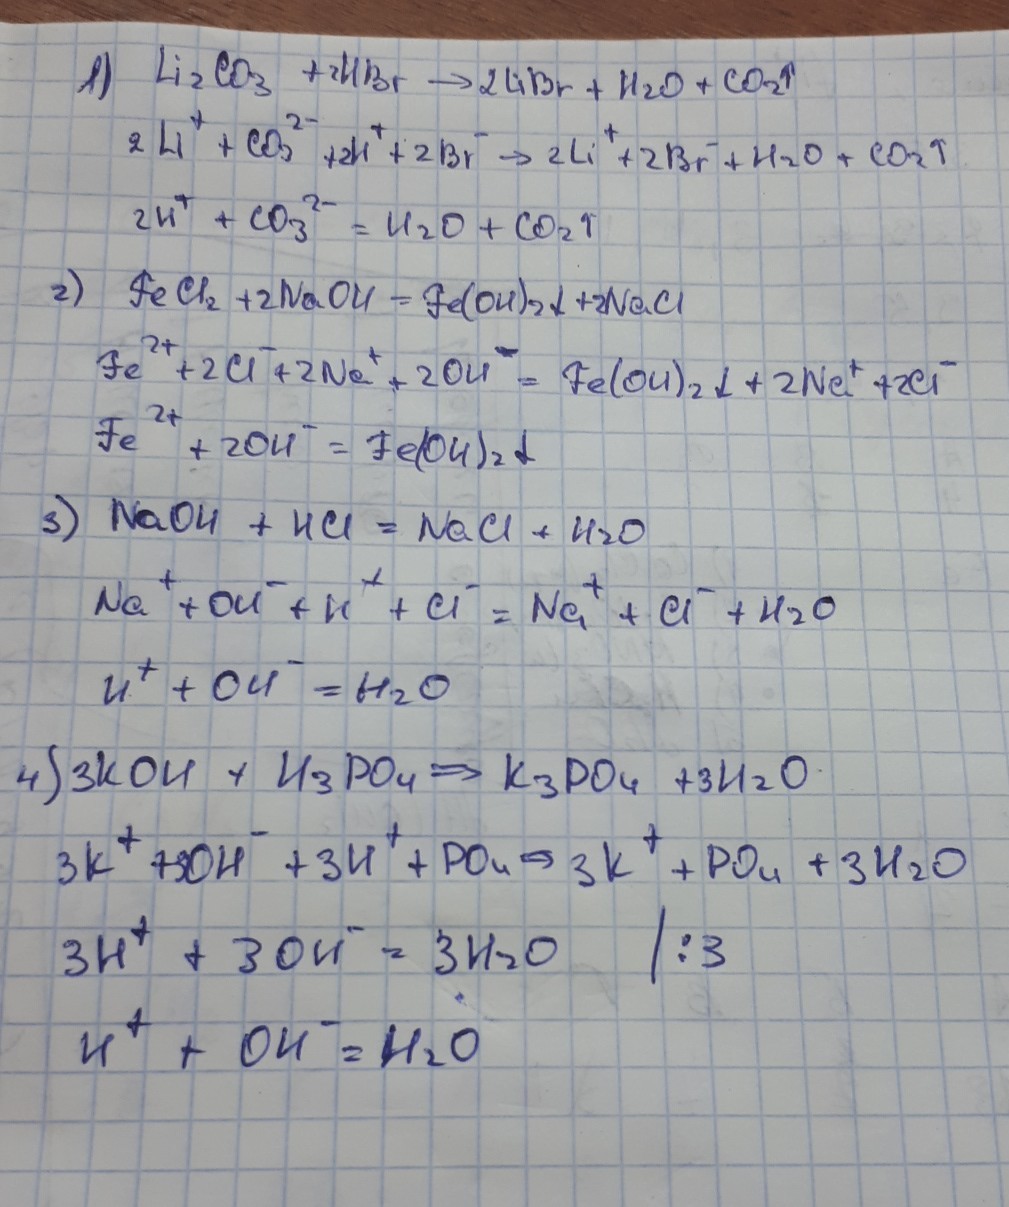 1) Li₂CO₃ + 2HBr → 2LiBr + H₂O + CO₂↑
2Li⁺ + CO₃²⁻ + 2H⁺ + 2Br⁻ → 2Li⁺ + 2Br⁻ + H₂O + CO₂↑
2H⁺ + CO₃²⁻ = H₂O + CO₂↑
2) FeCl₂ + 2NaOH = Fe(OH)₂↓ + 2NaCl
Fe²⁺ + 2Cl⁻ + 2Na⁺ + 2OH⁻ = Fe(OH)₂↓ + 2Na⁺ + 2Cl⁻
Fe²⁺ + 2OH⁻ = Fe(OH)₂↓
3) NaOH + HCl = NaCl + H₂O
Na⁺ + OH⁻ + H⁺ + Cl⁻ = Na⁺ + Cl⁻ + H₂O
H⁺ + OH⁻ = H₂O
4) 3KOH + H₃PO₄ ⇒ K₃PO₄ + 3H₂O
3K⁺ + 3OH⁻ + 3H⁺ + PO₄ ⇒ 3K⁺ + PO₄ + 3H₂O
3H⁺ + 3OH⁻ = 3H₂O /:3
H⁺ + OH⁻ = H₂O